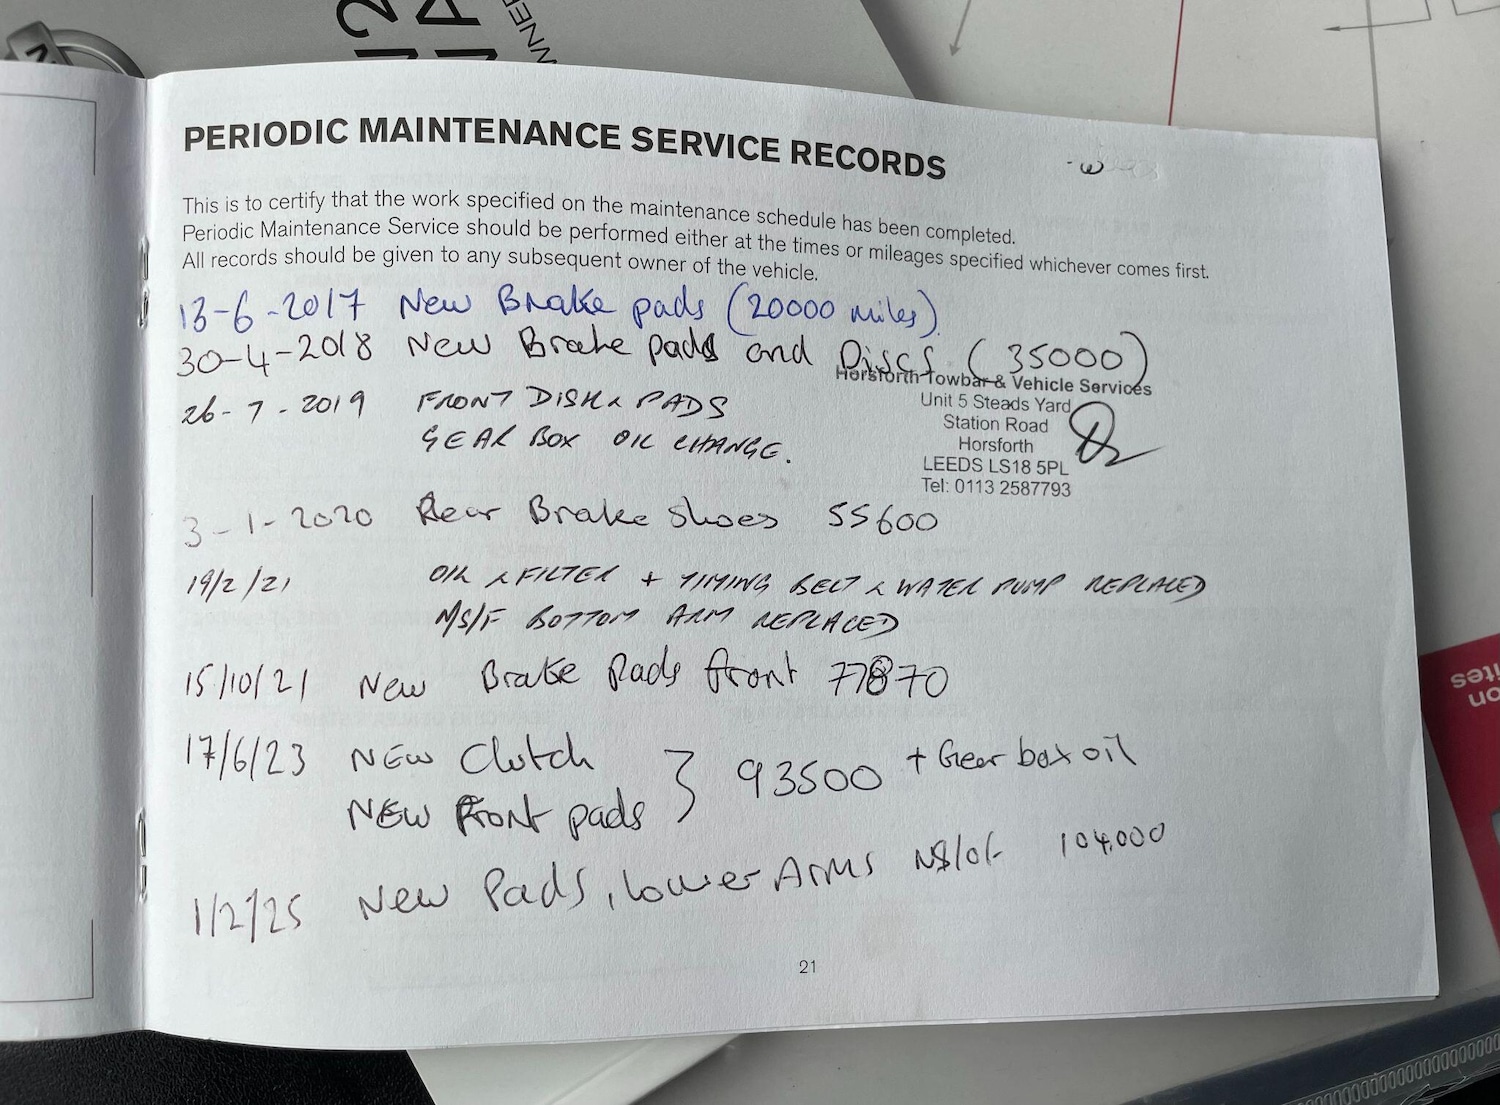 NNER
PERIODIC MAINTENANCE SERVICE RECORDS
This is to certify that the work specified on the maintenance schedule has been completed.
Periodic Maintenance Service should be performed either at the times or mileages specified whichever comes first.
All records should be given to any subsequent owner of the vehicle.
13-6-2017 New Brake pads (20000 miles).
30-4-2018 New Brake pads and Discs (35000)
26-7-2019 FRONT DISK & PADS
GEAR BOX OIL CHANGE.
Horsforth Towbar & Vehicle Services
Unit 5 Steads Yard
Station Road
Horsforth
LEEDS LS18 5PL
Tel: 0113 2587793
3-1-2020 Rear Brake Shoes 55600
19/2/21 OIL & FILTER + TIMING BELT & WATER PUMP REPLACED
N/S/F BOTTOM ARM REPLACED
15/10/21 New Brake Pads front 77870
17/6/23 NEW Clutch
NEW Front pads } 93500 + Gear box oil
1/2/25 New Pads, lower Arms NS/OS 104,000
21